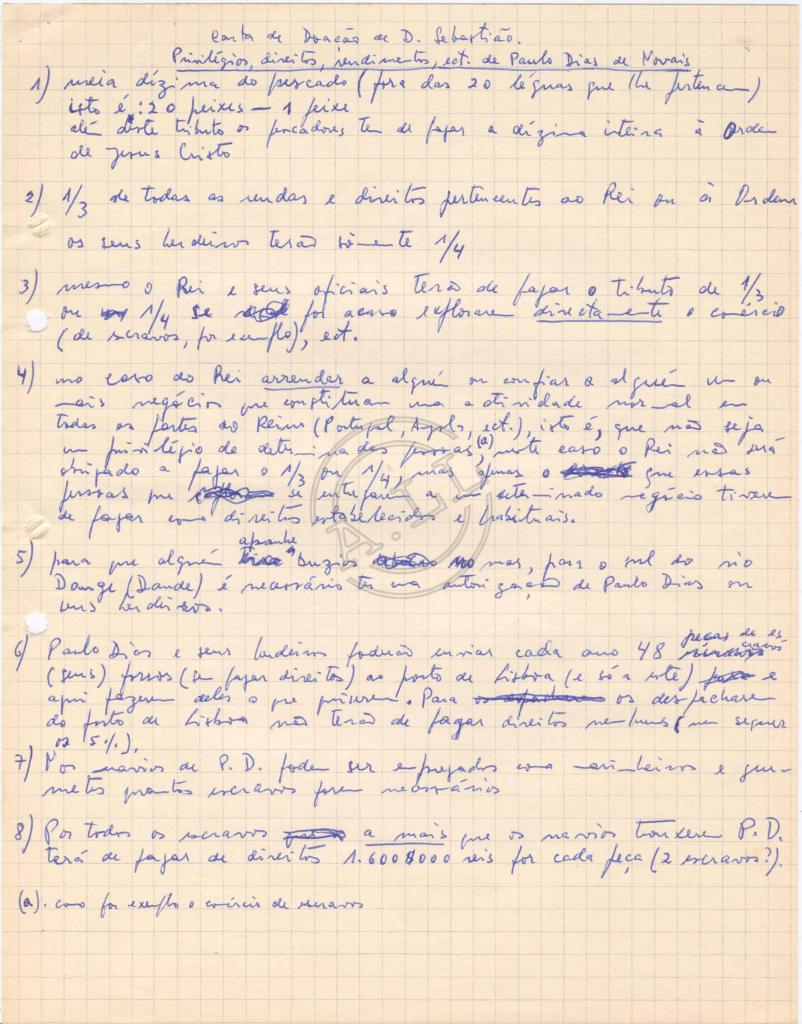 Carta de Doação de D. Sebastião.
Privilégios, direitos, rendimentos, ect. de Paulo Dias de Novais
1) meia dízima do pescado (fora das 20 léguas que lhe pertencem)
isto é: 20 peixes — 1 peixe
além deste tributo os pescadores tem de pagar a dízima inteira à Ordem
de Jesus Cristo
2) 1/3 de todas as rendas e direitos pertencentes ao Rei ou à Ordem
os seus herdeiros terão sòmente 1/4
3) mesmo o Rei e seus oficiais terão de pagar o tributo de 1/3
ou 1/4 se por acaso explorarem directamente o comércio
(de escravos, por exemplo), ect.
4) no caso do Rei arrendar a alguém ou confiar a alguém um ou
mais negócios que constituam uma actividade normal em
todas as partes do Reino (Portugal, Angola, ect.), isto é, que não seja
um privilégio de determinadas pessoas,(a) neste caso o Rei não será
obrigado a pagar o 1/3 ou 1/4, mas apenas o que essas
pessoas que se entregarem a um determinado negócio tiverem
de pagar como direitos estabelecidos e habituais.
5) para que alguém apanhe buzios no mar, para o sul do rio
Dange (Dande) é necessário ter uma autorização de Paulo Dias ou
seus herdeiros.
6) Paulo Dias e seus herdeiros poderão enviar cada ano 48 peças de escravos
(seus) forros (sem pagar direitos) ao porto de Lisboa (e só a este) e
aqui fazerem deles o que quiserem. Para os despacharem
do porto de Lisboa não terão de pagar direitos nenhuns (nem sequer
os 5%).
7) Nos navios de P. D. podem ser empregados como marinheiros e gru-
metes quantos escravos forem necessários
8) Por todos os escravos a mais que os navios trouxerem P. D.
terá de pagar de direitos 1.600$000 reis por cada peça (2 escravos?).
(a). como por exemplo o comércio de escravos
A.LI